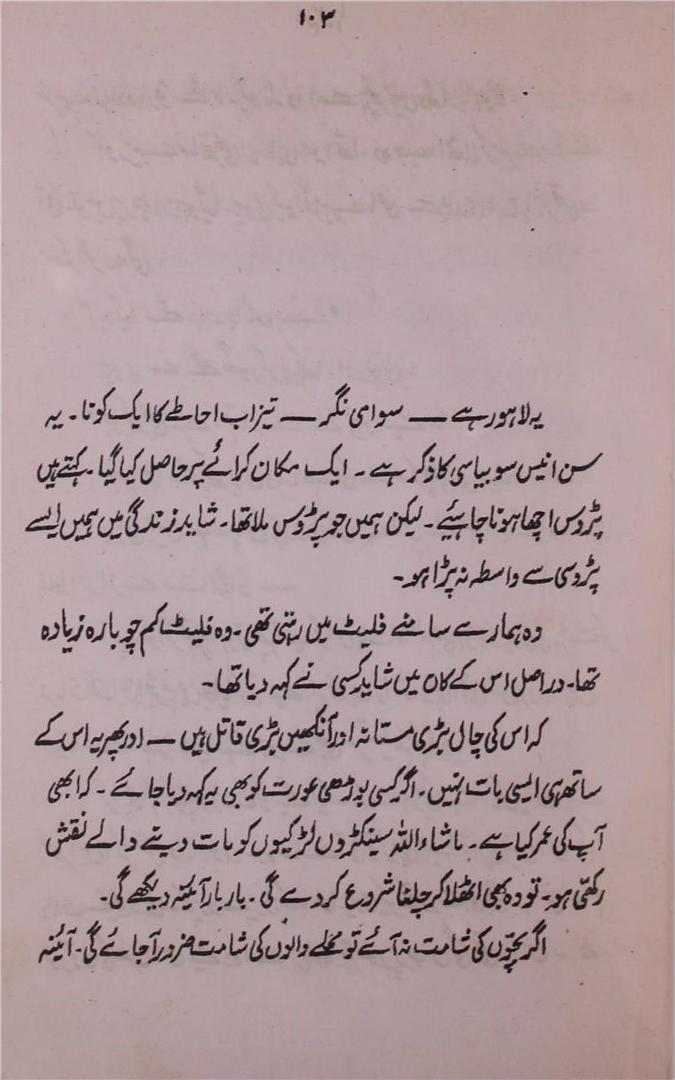 ۱۰۳
یہ لاہور ہے — سوامی نگر — تیزاب احاطے کا ایک کونا۔ یہ
سن انیس سو بیاسی کا ذکر ہے۔ ایک مکان کرائے پر حاصل کیا گیا۔ کہتے ہیں
پڑوس اچھا ہونا چاہیئے۔ لیکن ہمیں جو پڑوس ملا تھا۔ شاید زندگی میں ہمیں ایسے
پڑوسی سے واسطہ نہ پڑا ہو۔
وہ ہمارے سامنے فلیٹ میں رہتی تھی۔ وہ فلیٹ کم چوبارہ زیادہ
تھا۔ دراصل اس کے کان میں شاید کسی نے کہہ دیا تھا۔
کہ اس کی چال بڑی مستانہ اور آنکھیں بڑی قاتل ہیں — اور پھر یہ اس کے
ساتھ ہی ایسی بات نہیں۔ اگر کسی بوڑھی عورت کو بھی یہ کہہ دیا جائے۔ کہ ابھی
آپ کی عمر کیا ہے۔ ماشاء اللہ سینکڑوں لڑکیوں کو مات دینے والے نقش
رکھتی ہو۔ تو وہ بھی اٹھلا کر چلنا شروع کر دے گی۔ بار بار آئینہ دیکھے گی۔
اگر بچوں کی شامت نہ آئے تو محلے والوں کی شامت ضرور آ جائے گی۔ آئینہ